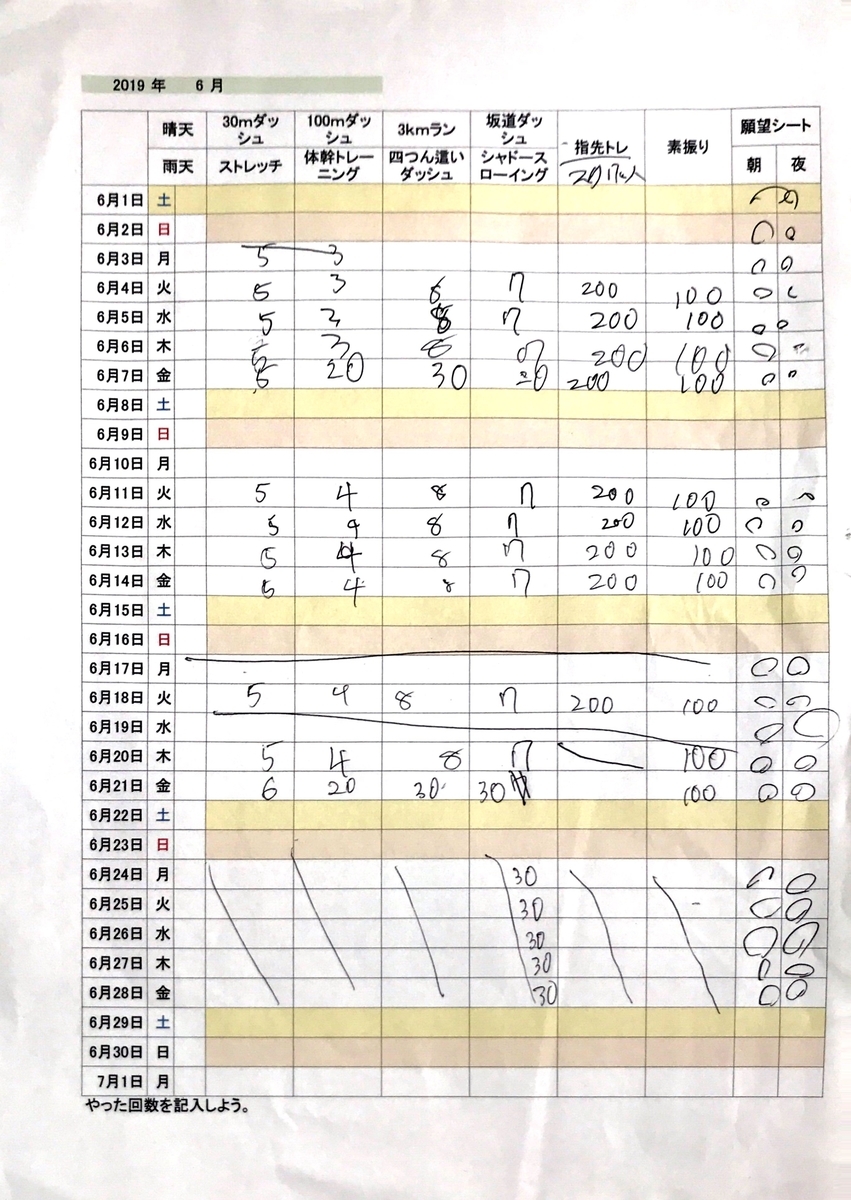 2019 年 6 月
晴天 30mダッシュ 100mダッシュ 3kmラン 坂道ダッシュ 指先トレ 素振り 願望シート
雨天 ストレッチ 体幹トレーニング 四つん這いダッシュ シャドースローイング 朝 夜
6月1日 土
6月2日 日
6月3日 月 5 3
6月4日 火 5 3 8 7 200 100
6月5日 水 5 3 8 7 200 100
6月6日 木 5 3 8 7 200 100
6月7日 金 5 20 30 20 200 100
6月8日 土
6月9日 日
6月10日 月
6月11日 火 5 4 8 7 200 100
6月12日 水 5 4 8 7 200 100
6月13日 木 5 4 8 7 200 100
6月14日 金 5 4 8 7 200 100
6月15日 土
6月16日 日
6月17日 月
6月18日 火 5 4 8 7 200 100
6月19日 水
6月20日 木 5 4 8 7 100
6月21日 金 6 20 30 30 100
6月22日 土
6月23日 日
6月24日 月 30
6月25日 火 30
6月26日 水 30
6月27日 木 30
6月28日 金 30
6月29日 土
6月30日 日
7月1日 月
やった回数を記入しよう。